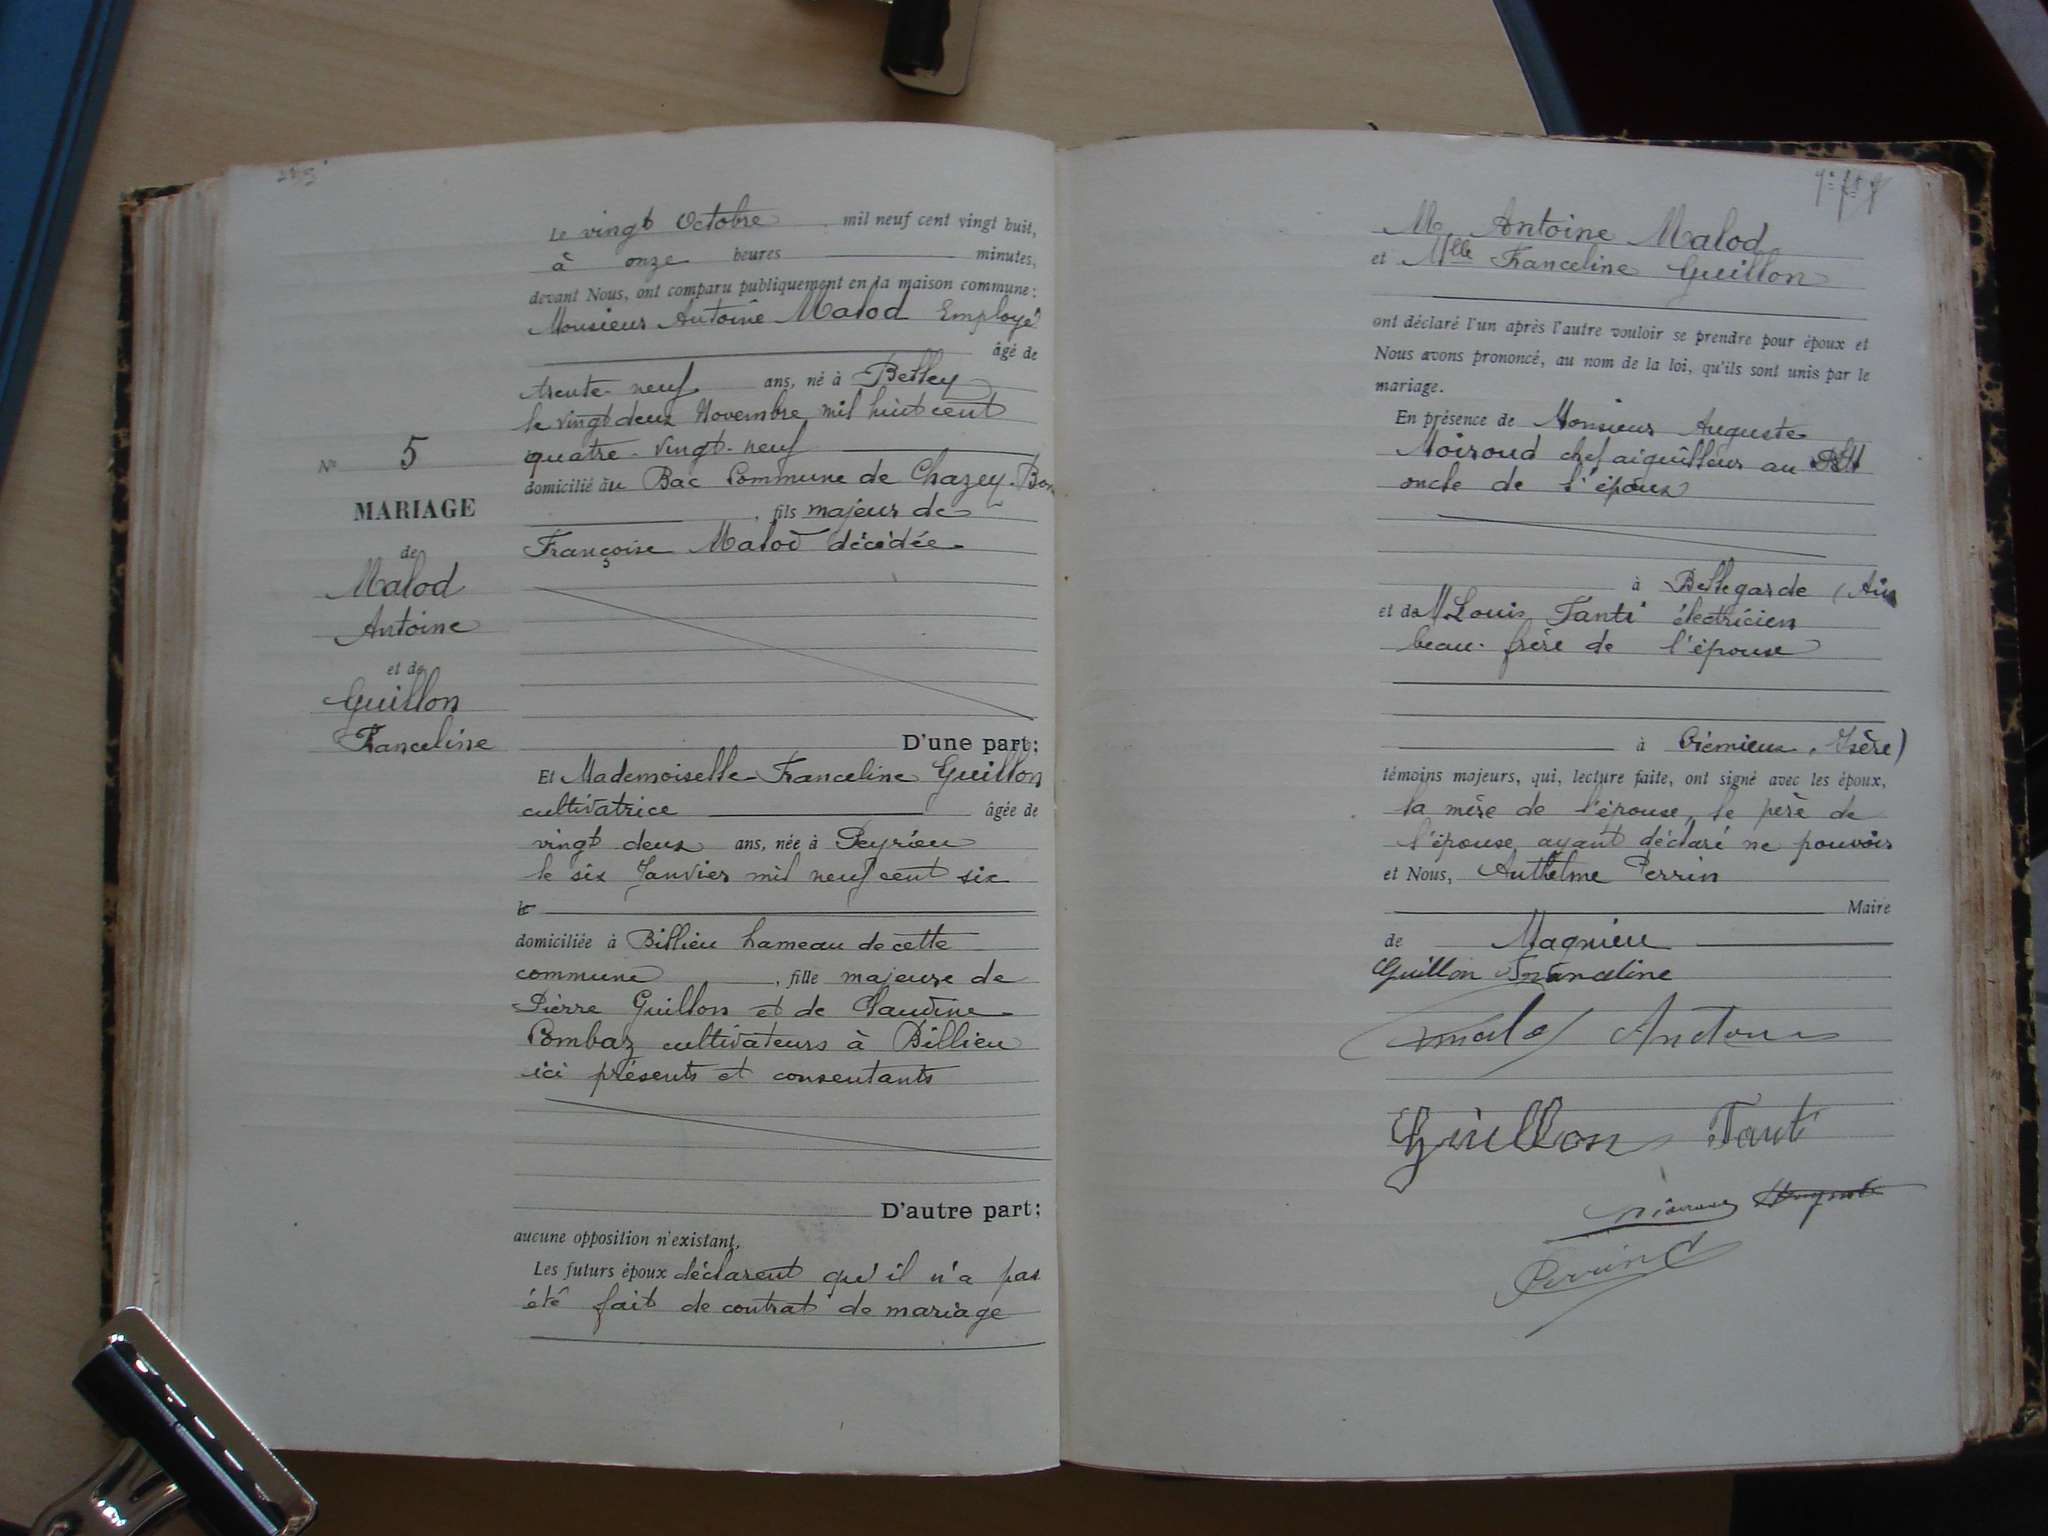 Le vingt Octobre mil neuf cent vingt huit,
à onze heures minutes,
devant Nous, ont comparu publiquement en la maison commune:
Monsieur Antoine Malod Employé
âgé de
trente-neuf ans, né à Belley
le vingt deux Novembre mil huit cent
quatre-vingt-neuf
domicilié au Bac Commune de Chazey-Bon
, fils majeur de
Françoise Malod décédée
D'une part;
N° 5
MARIAGE
de
Malod
Antoine
et de
Guillon
Franceline
Et Mademoiselle Franceline Guillon
cultivatrice âgée de
vingt deux ans, née à Peyrieu
le six Janvier mil neuf cent six
le
domiciliée à Billieu hameau de cette
commune , fille majeure de
Pierre Guillon et de Claudine
Pombaz cultivateurs à Billieu
ici présents et consentants
D'autre part;
aucune opposition n'existant,
Les futurs époux déclarent qu'il n'a pas
été fait de contrat de mariage
M. Antoine Malod
et Mlle Franceline Guillon
ont déclaré l'un après l'autre vouloir se prendre pour époux et
Nous avons prononcé, au nom de la loi, qu'ils sont unis par le
mariage.
En présence de Monsieur Auguste
Moiroud chef aiguilleur au
oncle de l'époux
à Bellegarde (Ain
et de M Louis Tanti électricien
beau-frère de l'épouse
à Crémieu (Isère)
témoins majeurs, qui, lecture faite, ont signé avec les époux,
la mère de l'épouse, le père de
l'épouse ayant déclaré ne pouvoir
et Nous, Anthelme Perrin
Maire
de Magnieu
Guillon Franceline
Malod Antoine
Guillon Tanti
Perrin